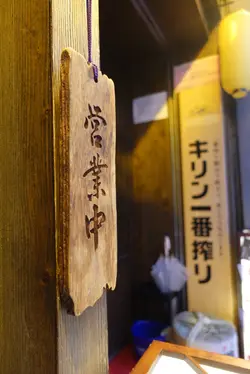 営業中
キリン一番搾り